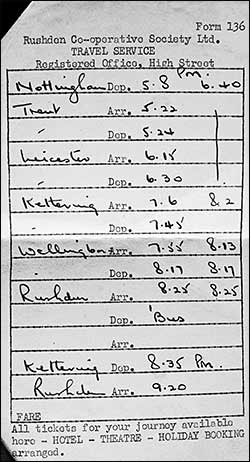 Form 136
Rushdon Co-operative Society Ltd.
TRAVEL SERVICE
Registered Office, High Street
P.m.
Nottingham Dep. 5.8 6.40
Trent Arr. 5.22
" Dep. 5.24
Leicester Arr. 6.15
" Dep. 6.30
Kettering Arr. 7.6 8.2
Dep. 7.45
Wellingboro Arr. 7.55 8.13
" Dep. 8.17 8.17
Rushden Arr. 8.25 8.25
Dep. 'Bus
Arr.
Kettering Dep. 8.35 P.m.
Rushden Arr. 9.20
FARE
All tickets for your journey available
here - HOTEL - THEATRE - HOLIDAY BOOKING
arranged.